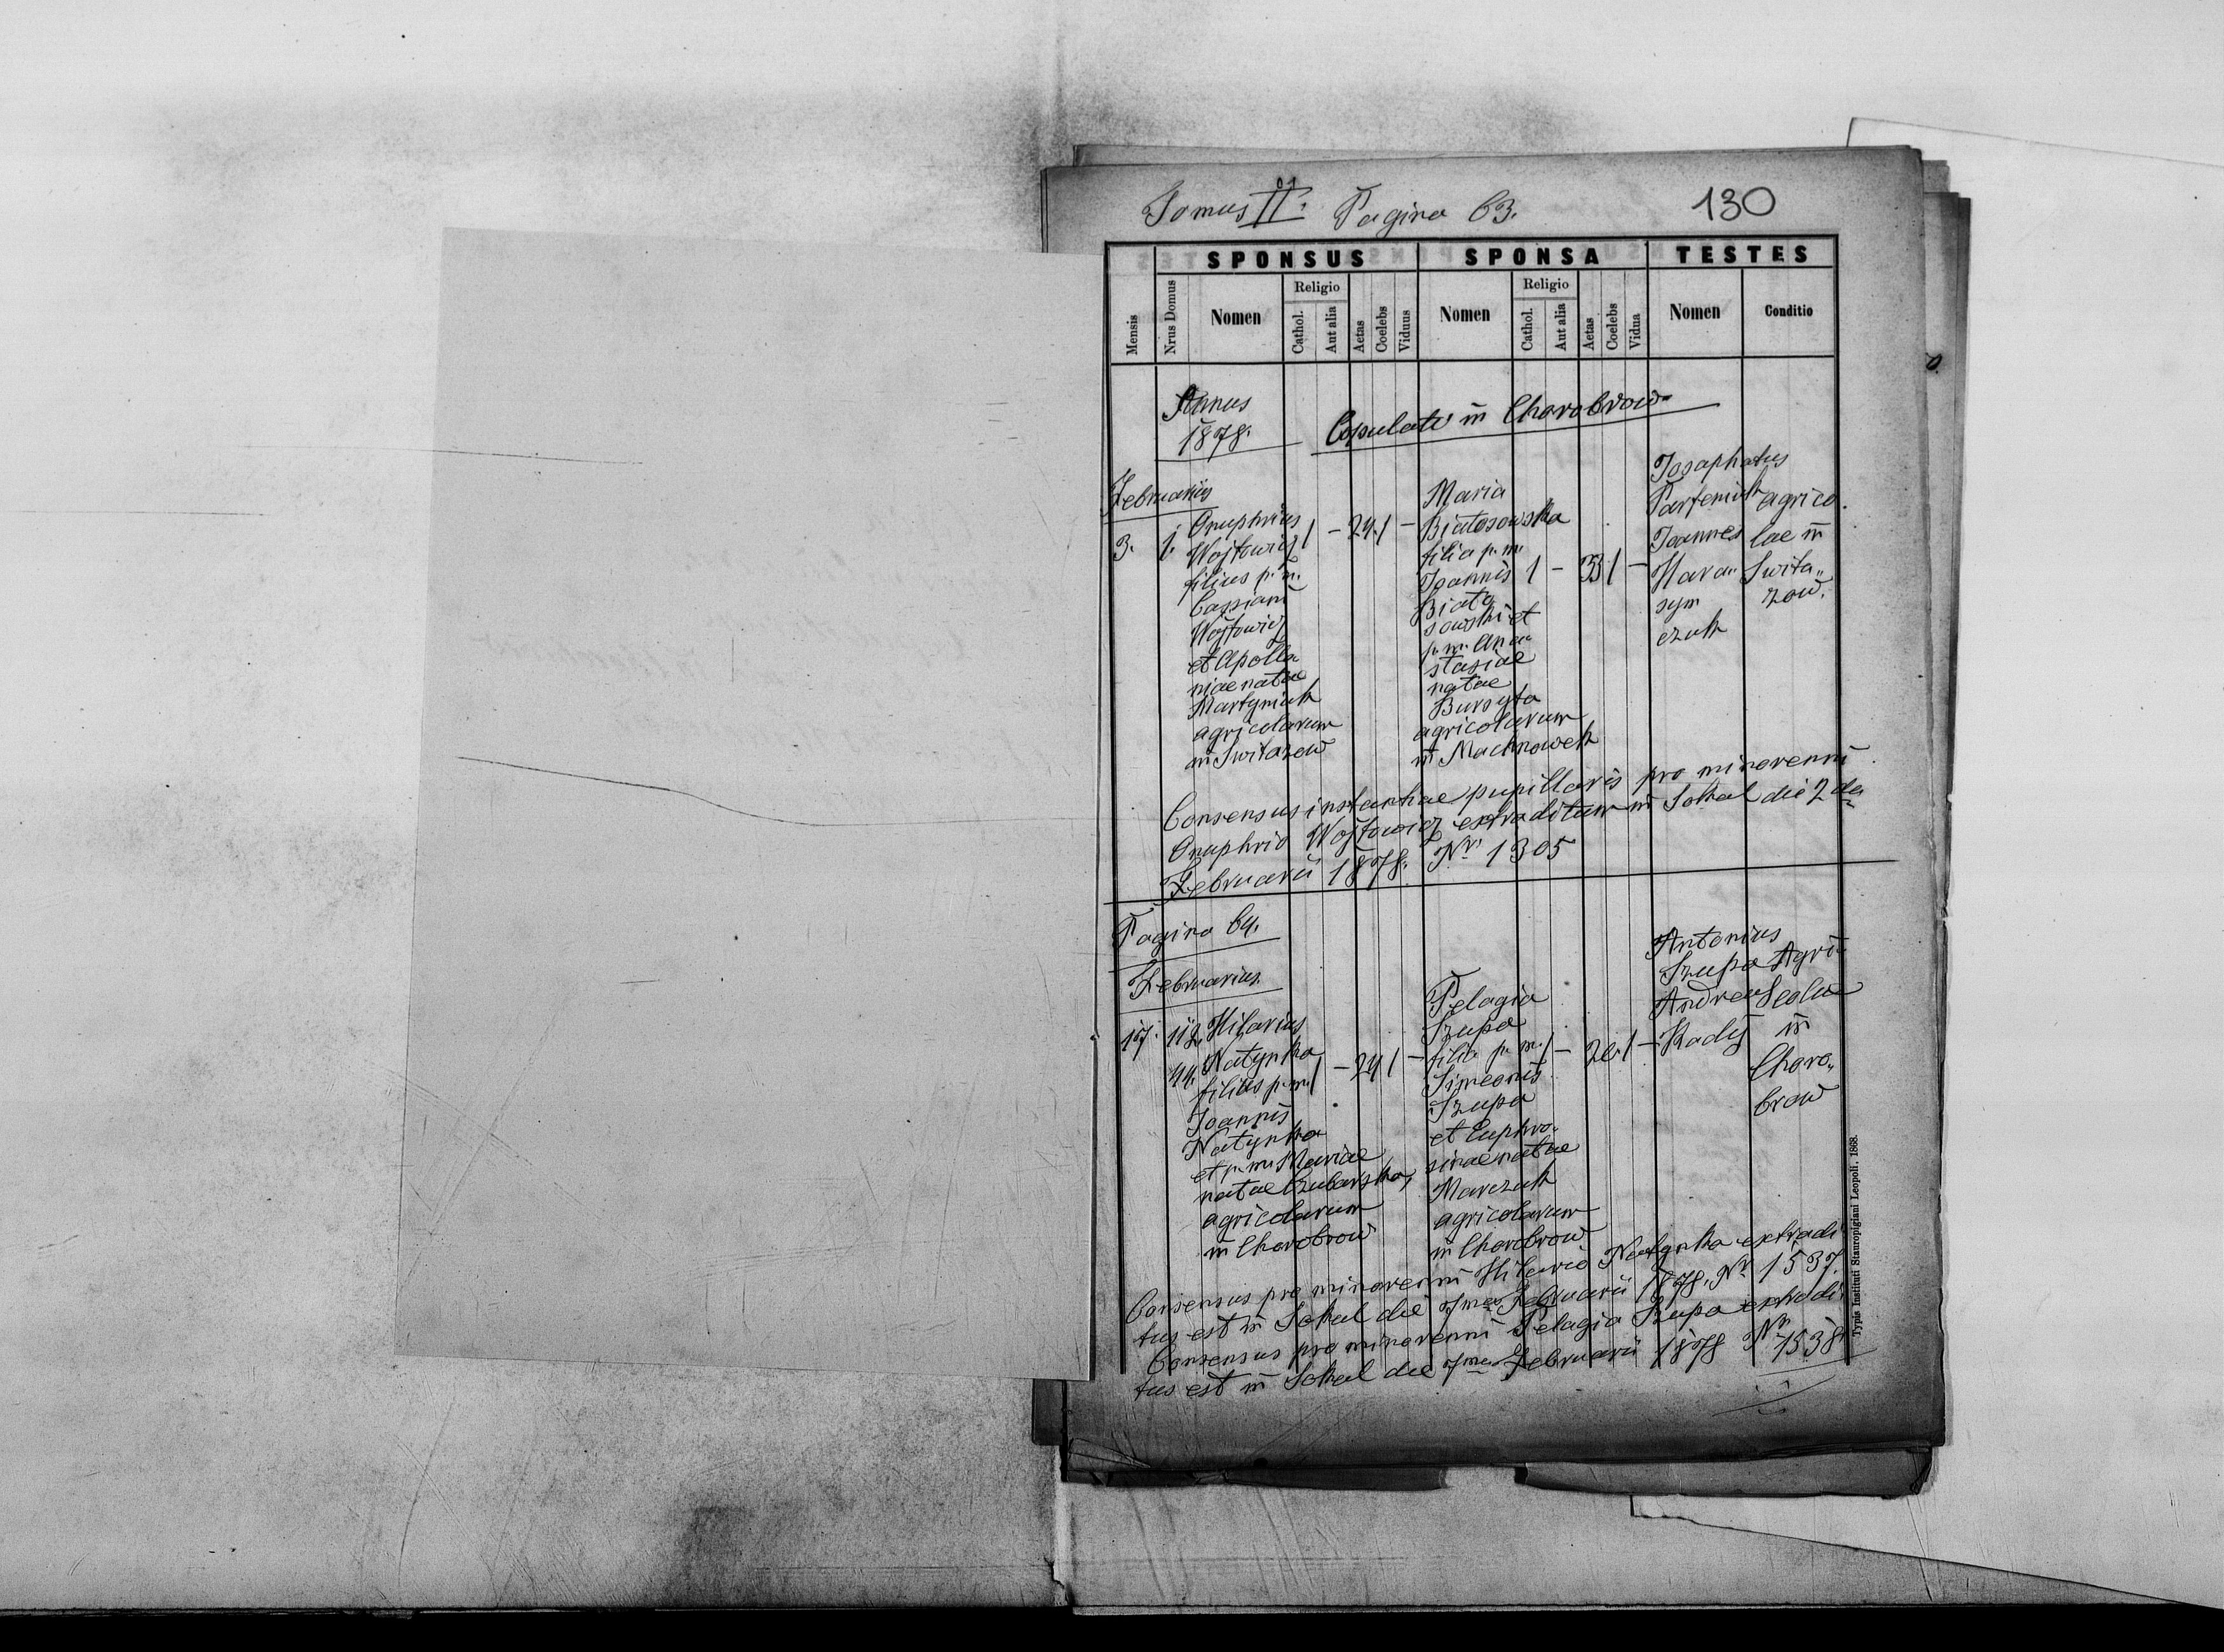 Tomus II. Pagina 63. 130
SPONSUS SPONSA TESTES
Mensis Nrus Domus Nomen Religio Cathol. Aut alia Aetas Coelebs Viduus Nomen Religio Cathol. Aut alia Aetas Coelebs Vidua Nomen Conditio
Annus
1878.
Copulati in Chorobrow
Februarius
3. 1. Onuphrius
Wojtowicz 1 - 24. 1 -
filius p. m.
Cassiani
Wojtowicz
et Apollo
niae natae
Martyniuk
agricolarum
in Switazow
Maria
Białosowska
filia p. m.
Joannis 1 - 33 1 -
Biało
sowski et
p. m. Ana
stasiae
natae
Bursyta
agricolarum
in Machnowek
Josaphatus
Parfeniuk
Joannes
Hara"
sym
czuk
agrico
lae in
Swita"
zow.
Consensus instantiae pupillaris pro minorenni
Onuphrio Wojtowicz extraditum in Sokal die 2da
Februarii 1878. Nr. 1305
Pagina 64.
Februarius.
17. 112. Hilarius
44. Natynka
filius p. m. 1 - 24 1 -
Joannis
Natynka
et p. m. Mariae
natae Czubarska,
agricolarum
in Chorobrow
Pelagia
Szupa
filia p. m. 1 - 20. 1 -
Simeonis
Szupa
et Euphro"
sinae natae
Marczuk
agricolarum
in Chorobrow
Antonius
Szupa
Andreas
Kadij
Agri"
colae
in
Choro"
brow
Consensus pro minorenni Hilario Natynka extradi
tus est in Sokal die 7ma Februarii 1878. Nr. 1537.
Consensus pro minorenni Pelagia Szupa extradi
tus est in Sokal die 7ma Februarii 1878 Nr. 1538
Typis Instituti Stauropigiani Leopoli. 1868.